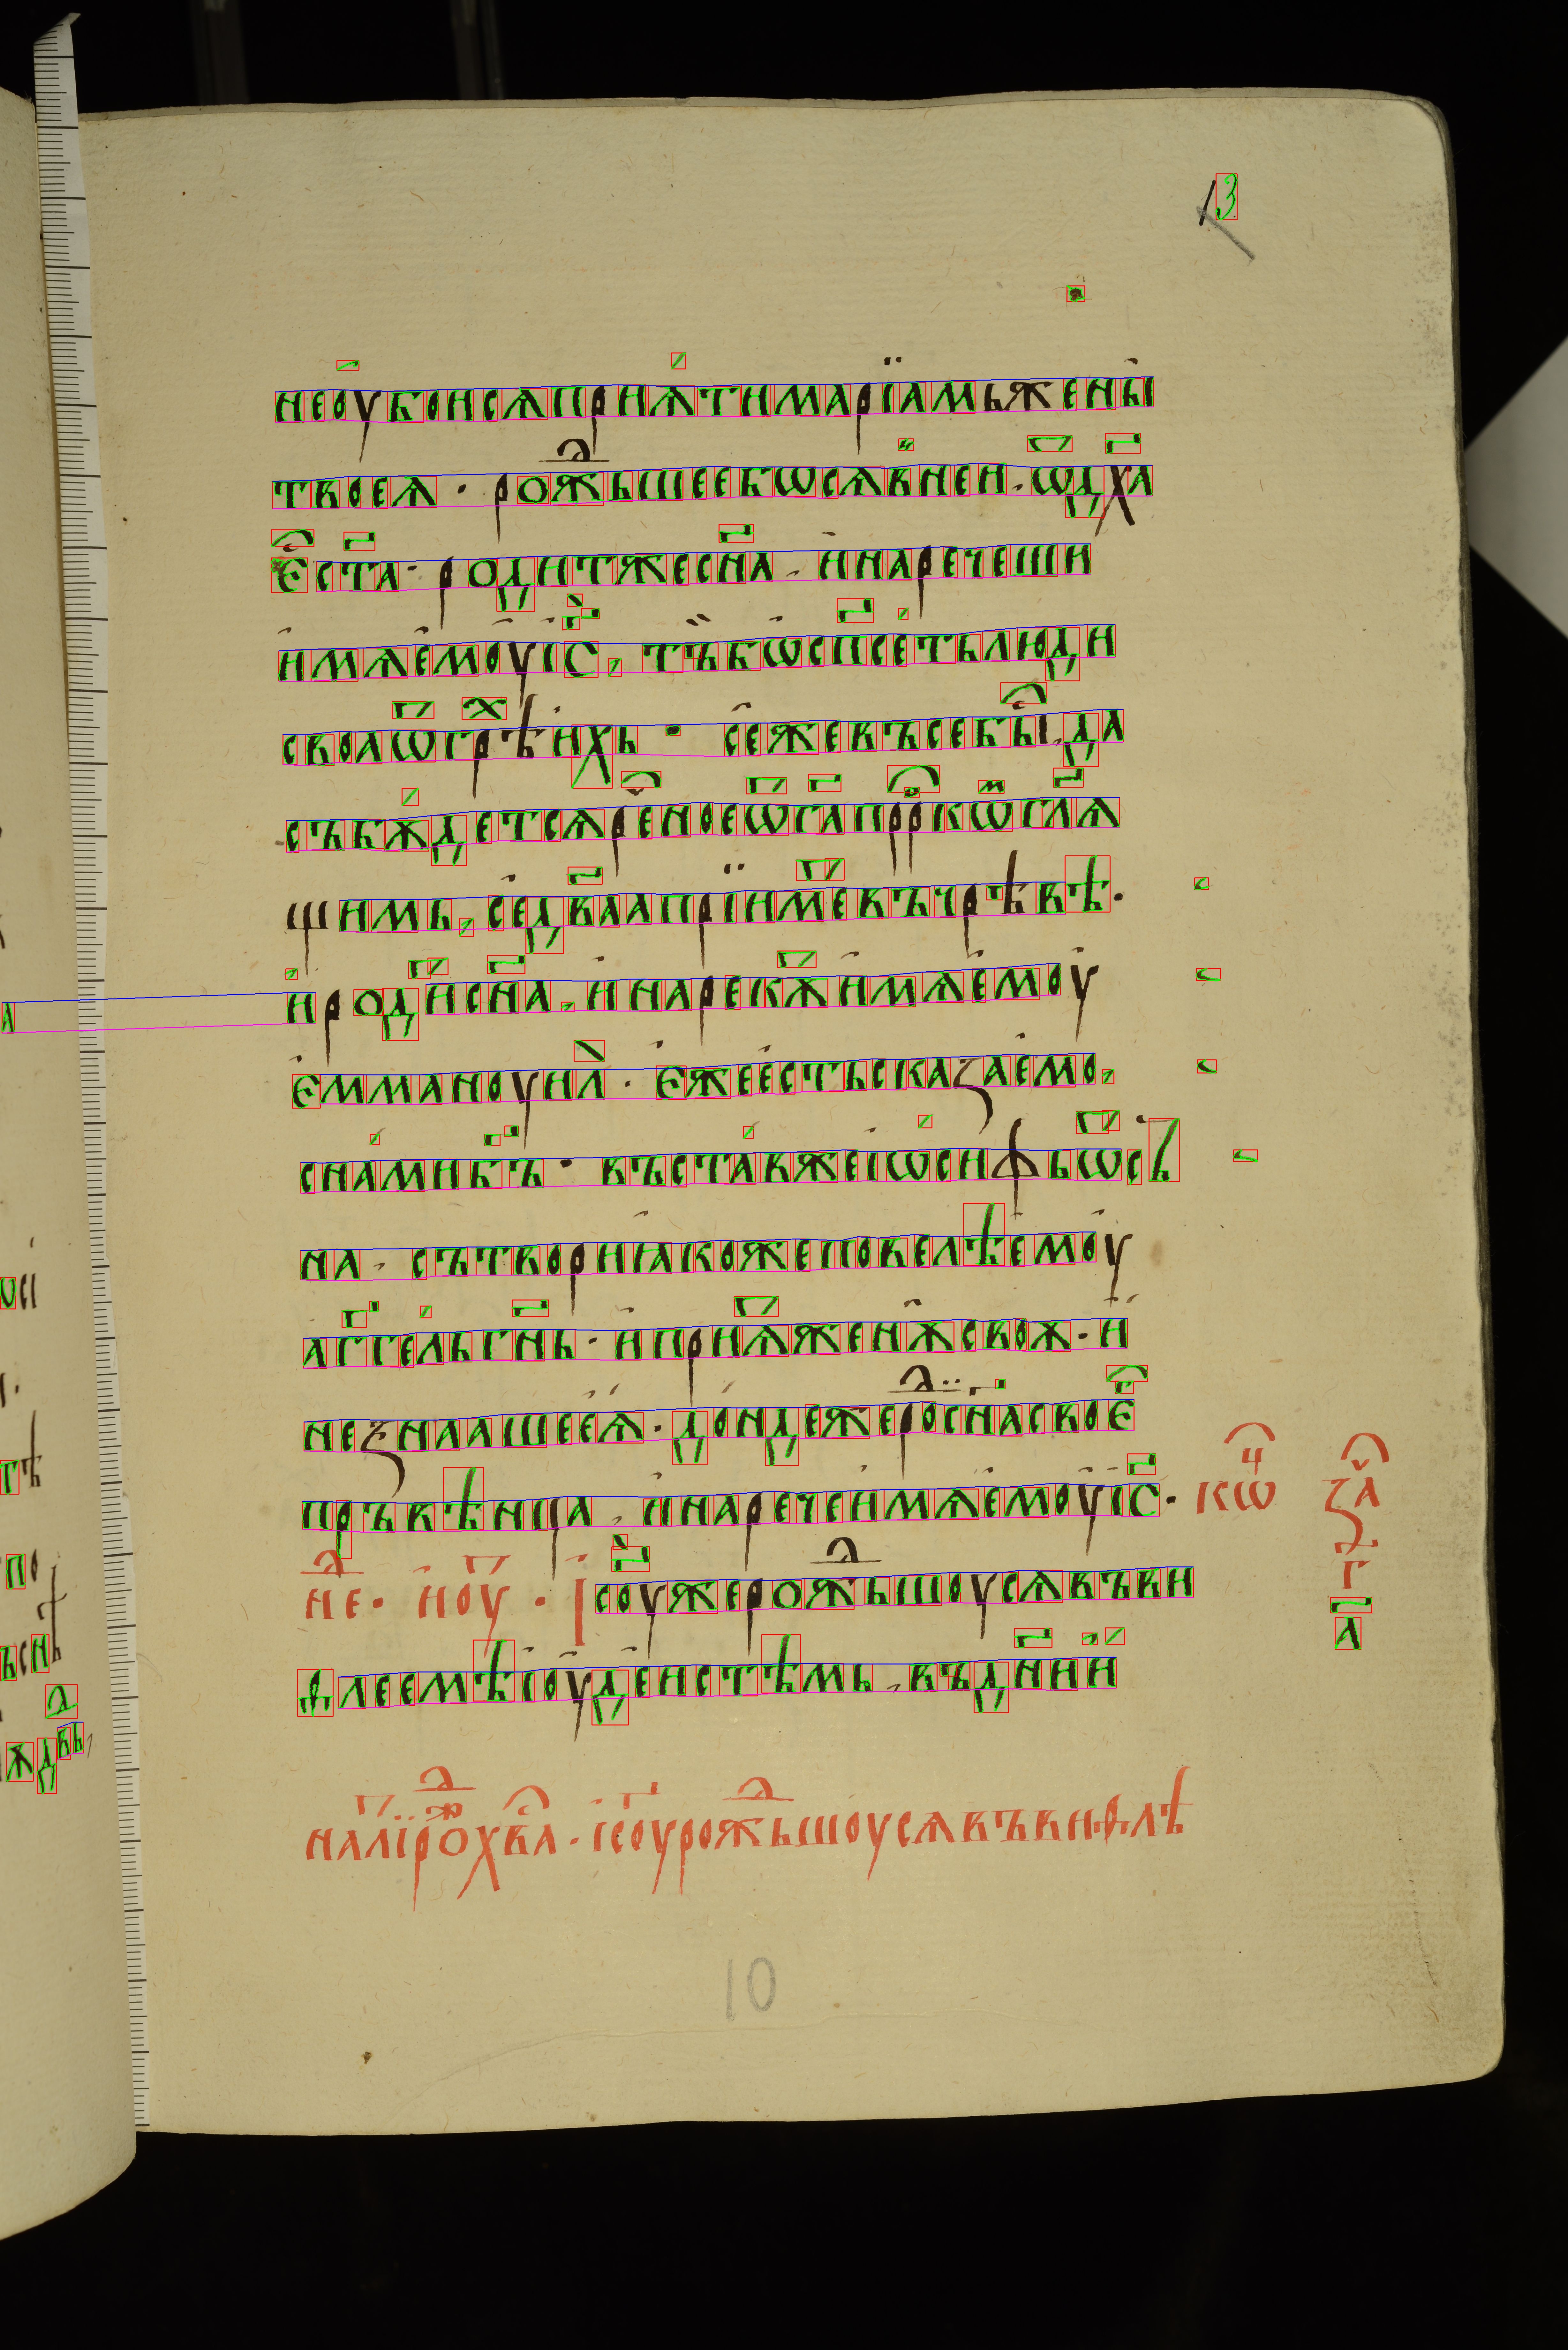 13
не оубоисѧ прїѧти марїамь жены
твоеѧ · рожⷣьшеебѡсѧ в ней. ѿ дх҃а
єс҆ ст҃а · родитжес сн҃а , и наречеши
имѧ емоу іс҃, тъ бѡ сп҃сеть люди
своѧ ѿ грѣⷯ ихь · се же въсе бы да
събѫдетсѧ реⷱное ѿ га҃ прⷪркѡⷨ гл҃ѧ
щимь, се дв҃аа прїиметь въ чрѣвѣ ·
и родить сн҃а, и нарекѫⷮ имѧ емоу
Еммануил · Еже есть сказаемо,
с нами бъ҃ · въставже іѡсифь ѿ сь
на , сътвори ꙗкоже повелѣ емоу
аг҃гель гн҃ь · и приѧⷮ женѫ своѫ · и
не знааше еѧ · дондеже роⷣ сн҃а своеⷢ
пръвѣнца , и нарече имѧ емоу іс҃ · коⷩ҇ зⷱа
не · по роⷤ · Іс҃оу же рожⷣьшоусѧ въ ви г҃
ѳлеемѣ іоудеистѣмь , въ дн҃и и л҃
на лиⷮ роⷤⷣ хв҃а · іс҃оу рожⷣьшоусѧ въ виѳлѣ
10